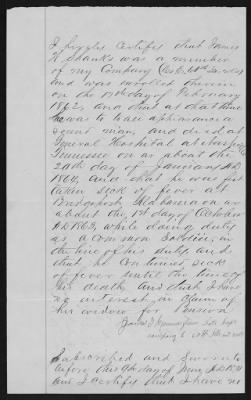 I hereby certify that James
H Shanks was a member
of my Company Co G 60th Ill vols
and was enrolled therein
on the 17th day of February
1862, and that at that time
he was to all appearance a
sound man, and died at
General Hospital at Nashville
Tennessee on or about the
20th day of January AD
1864, and that he was first
taken sick of fever at
Bridgeport Alabama on or
about the 1st day of October
AD 1863, while doing duty
as a common Soldier, in
the line of his duty, and
that he continued sick
of fever until the time of
his death, and that I have
no interest in claim of
his widow for Pension
late Capt
company
Subscribed and sworn to
before this 9th day of May AD 18
and I certify that I have no